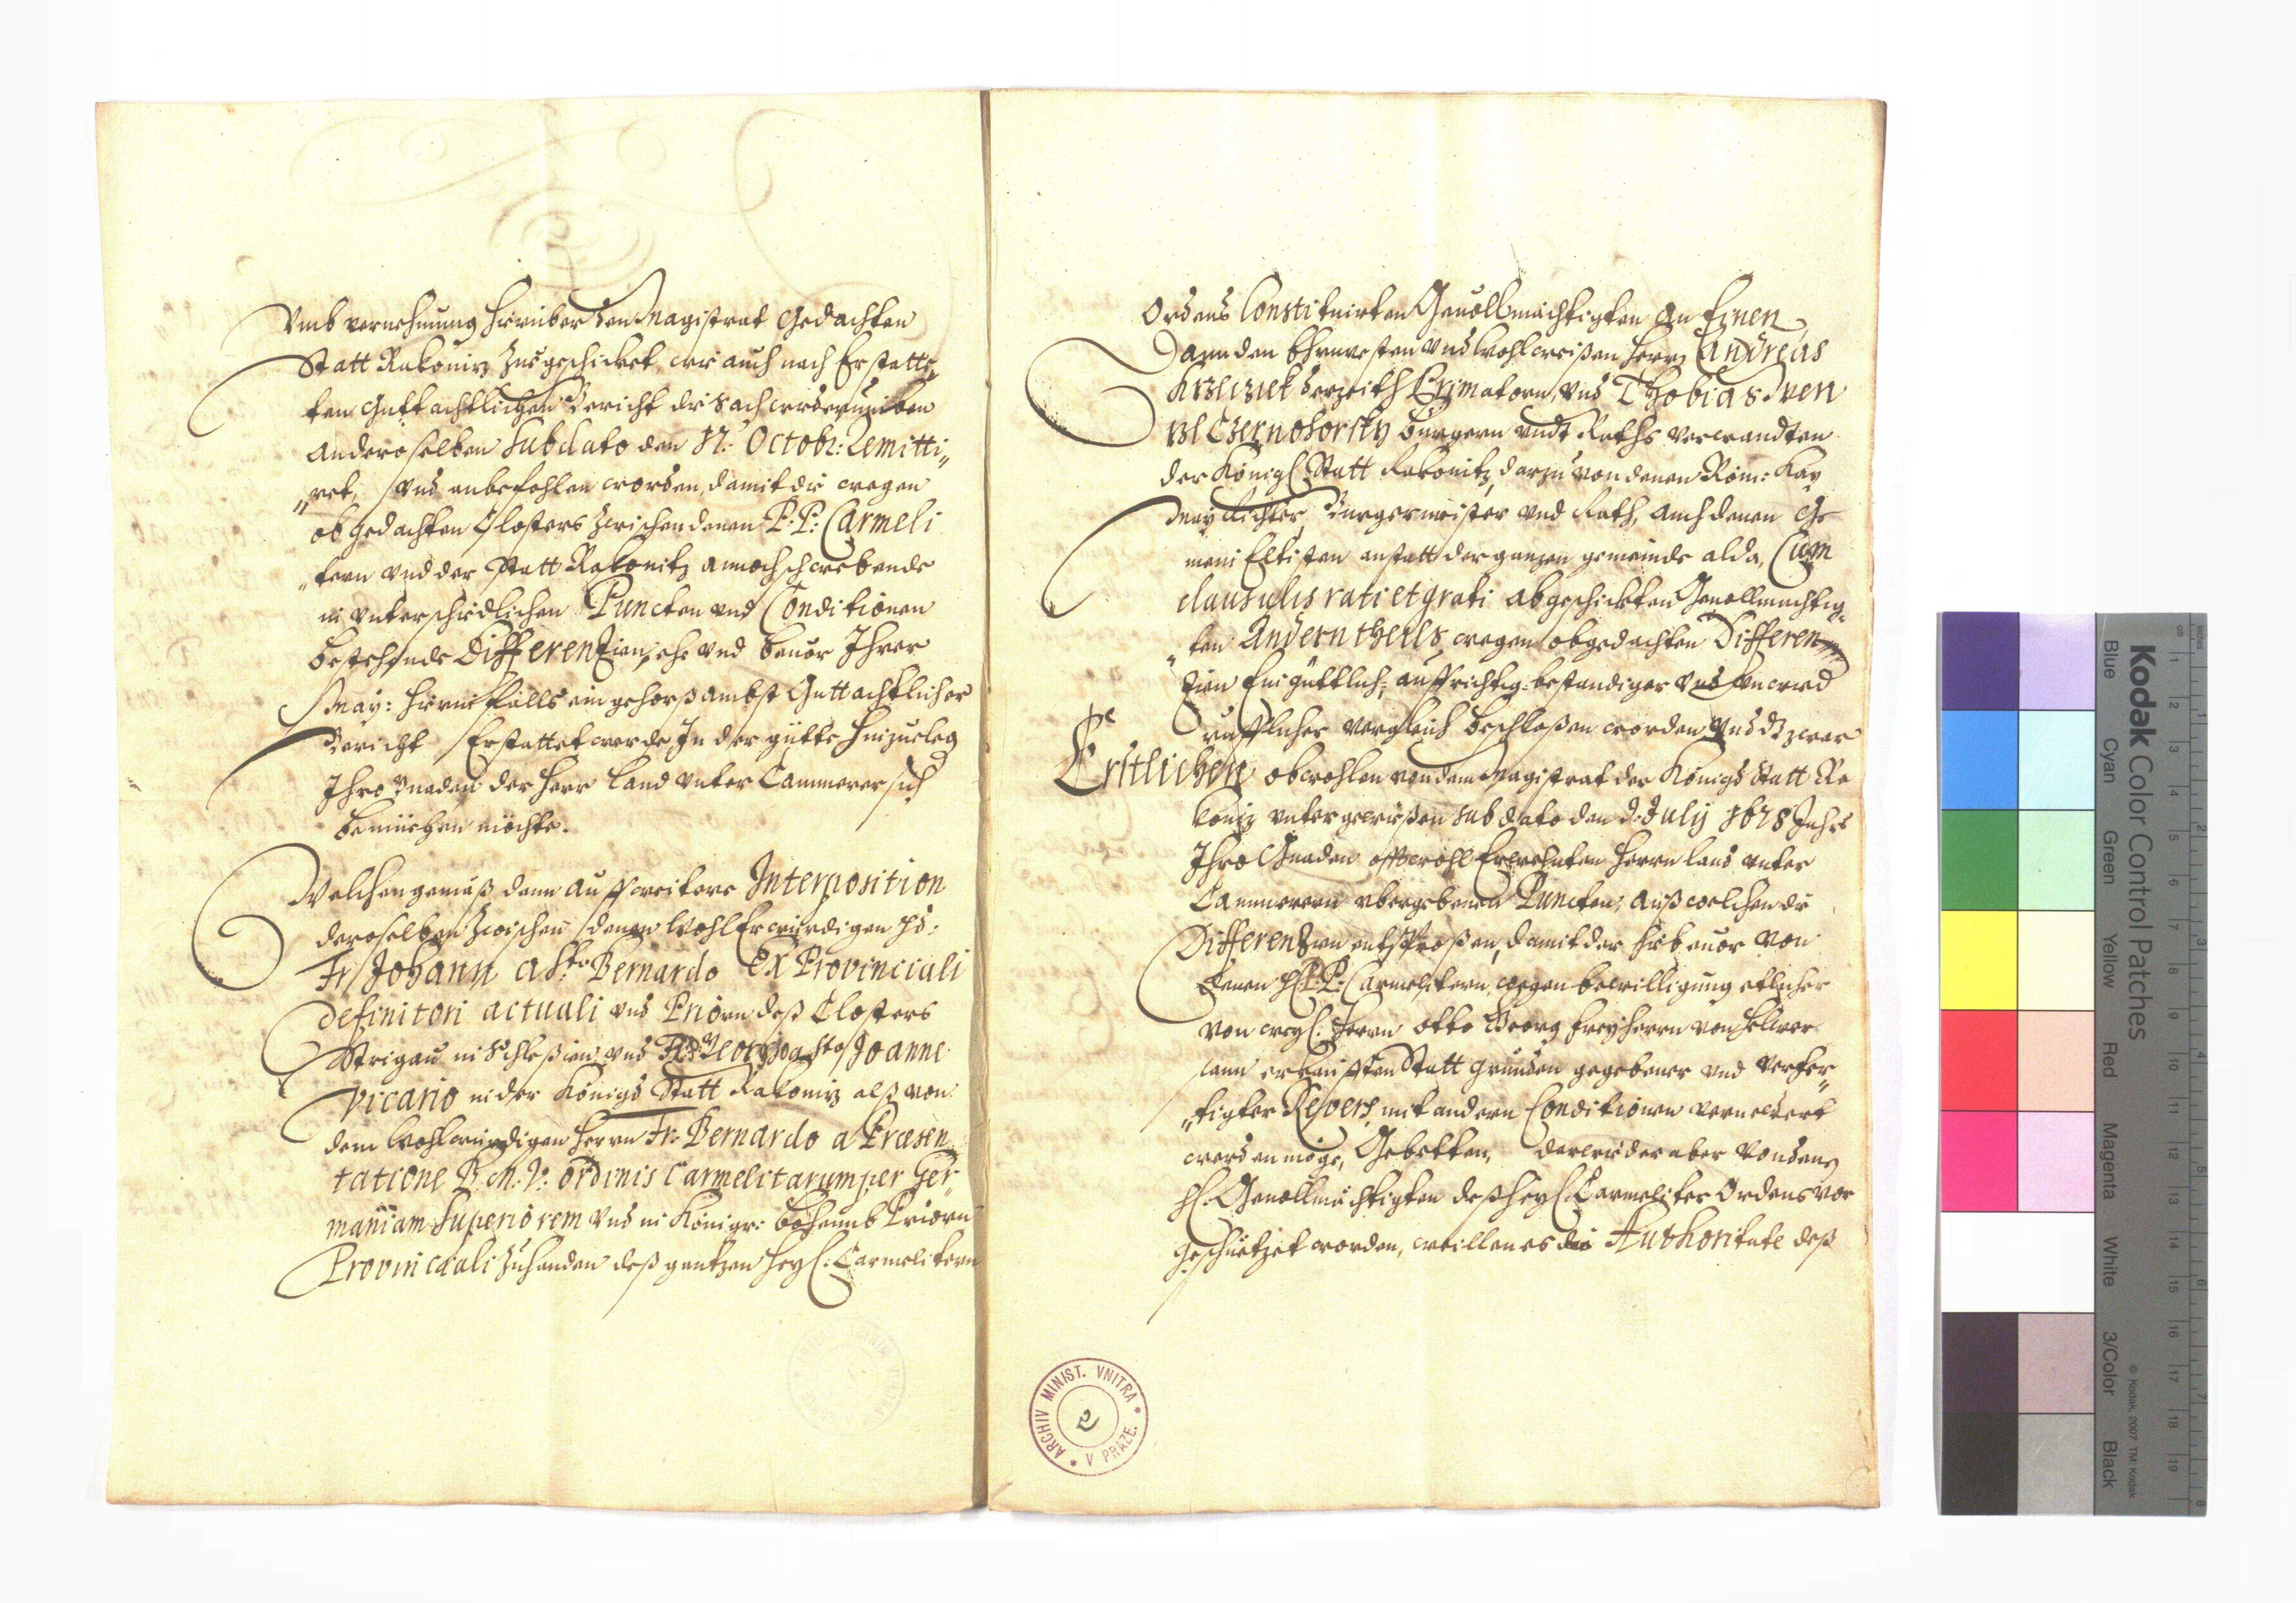 Vmb vernehmung hierüber dem Magistrat Gedachten
Statt Rakonitz Zue geschicket, wie auch nach Erstatte„
ten guttachtlichen Bericht die Sach widerumben
an deroselben Sub dato den 17. Octobr: Remitti„
„ret, vnd anbefohlen worden, damit die wegen
obgedachten Closters zwischen denen P: P: Carmeli
„tern vnd der Statt Rakonitz annoch schwebende
in vnterschiedlichen Puncten vnd Conditionen
bestehende Differenzien, ehe vnd beuor Ihrer
May: hierinfalls ein gehorsambst Guttachtlicher
Bericht Erstattet werde, In der gütte hinzueleg
Ihro Gnaden der Herr Land vnter Cammerer sich
bemüehen möchte.
Welchem gemäß dann auff weitere Interposition
deroselben zwischen denen WohlErwürdigen
Fr: Johann a Sto Bernardo Ex Provinciali
Definitori actuali vnd Priorn deß Closters
Strigau in Schlesien vnd Fr: Georgio a Sto Joanne
Vicario in der Königs Statt Rakonitz alß von
dem Wohlwürdigen Herrn Fr: Bernardo a Præsen
tatione B. M. V: Ordinis Carmelitarum per Ger„
maniam Superiorem vnd in Königr: Böheimb Priorn
Provinciali zuhanden deß gantzen Heyl: Carmelitern
Ordens Constituirten Geuollmächtigten an Einen,
Dann den Ehrnvesten vnd Wohlweisen Herrn Andreas
derzeith Primatorn, vnd Thobias Wen
zl Czernohorsky Bürgern vndt Raths verwandten
der Königl: Statt Rakonitz, darzu von denen Röm: Kay
May Richter, Burgermeister vnd Rath, auch denen Ge
mein Eltisten anstatt der gantzen gemeinde alda, Cum
clausulis rati et grati abgeschickten Geuollmächtig„
„ten Anderntheils, wegen obgedachten Differen
zien Ein güttlich: auffrichtig: bestandiger vnd vnwied
rufflicher vergleich beschloßen worden vnd zwar
Erstlichen obwohlen von dem Magistrat der Königs Statt Ra
koniz vnter gewissen sub dato den 2. July 1678 Jahrs
Ihro Gnaden offtwohl Erwehnten Herrn Land vnter
Cammerern vbergebenen Puncten, auß welchen die
Differenzien entsproßen, damit der hiebeuor von
denen H: P: P: Carmelitern, wegen bewilligung etlicher
von weyl: Herrn Otto Georg Freyherrn von
erkaufften Statt gründen gegebener vnd verfer„
„tigter Revers, mit andern Conditionen vernewert
werden möge, Gebetten, derwieder aber von denen
H: Geuollmächtigten deß Heyl: Carmeliter Ordens vor
geschüetzet worden, weillen es Authoritate deß
ARCHIV MINIST. VNITRA * V PRAZE. *
2
Kodak Color Control Patches
Blue Cyan Green Yellow Red Magenta White 3/Color Black
© Kodak, 2007 TM: Kodak